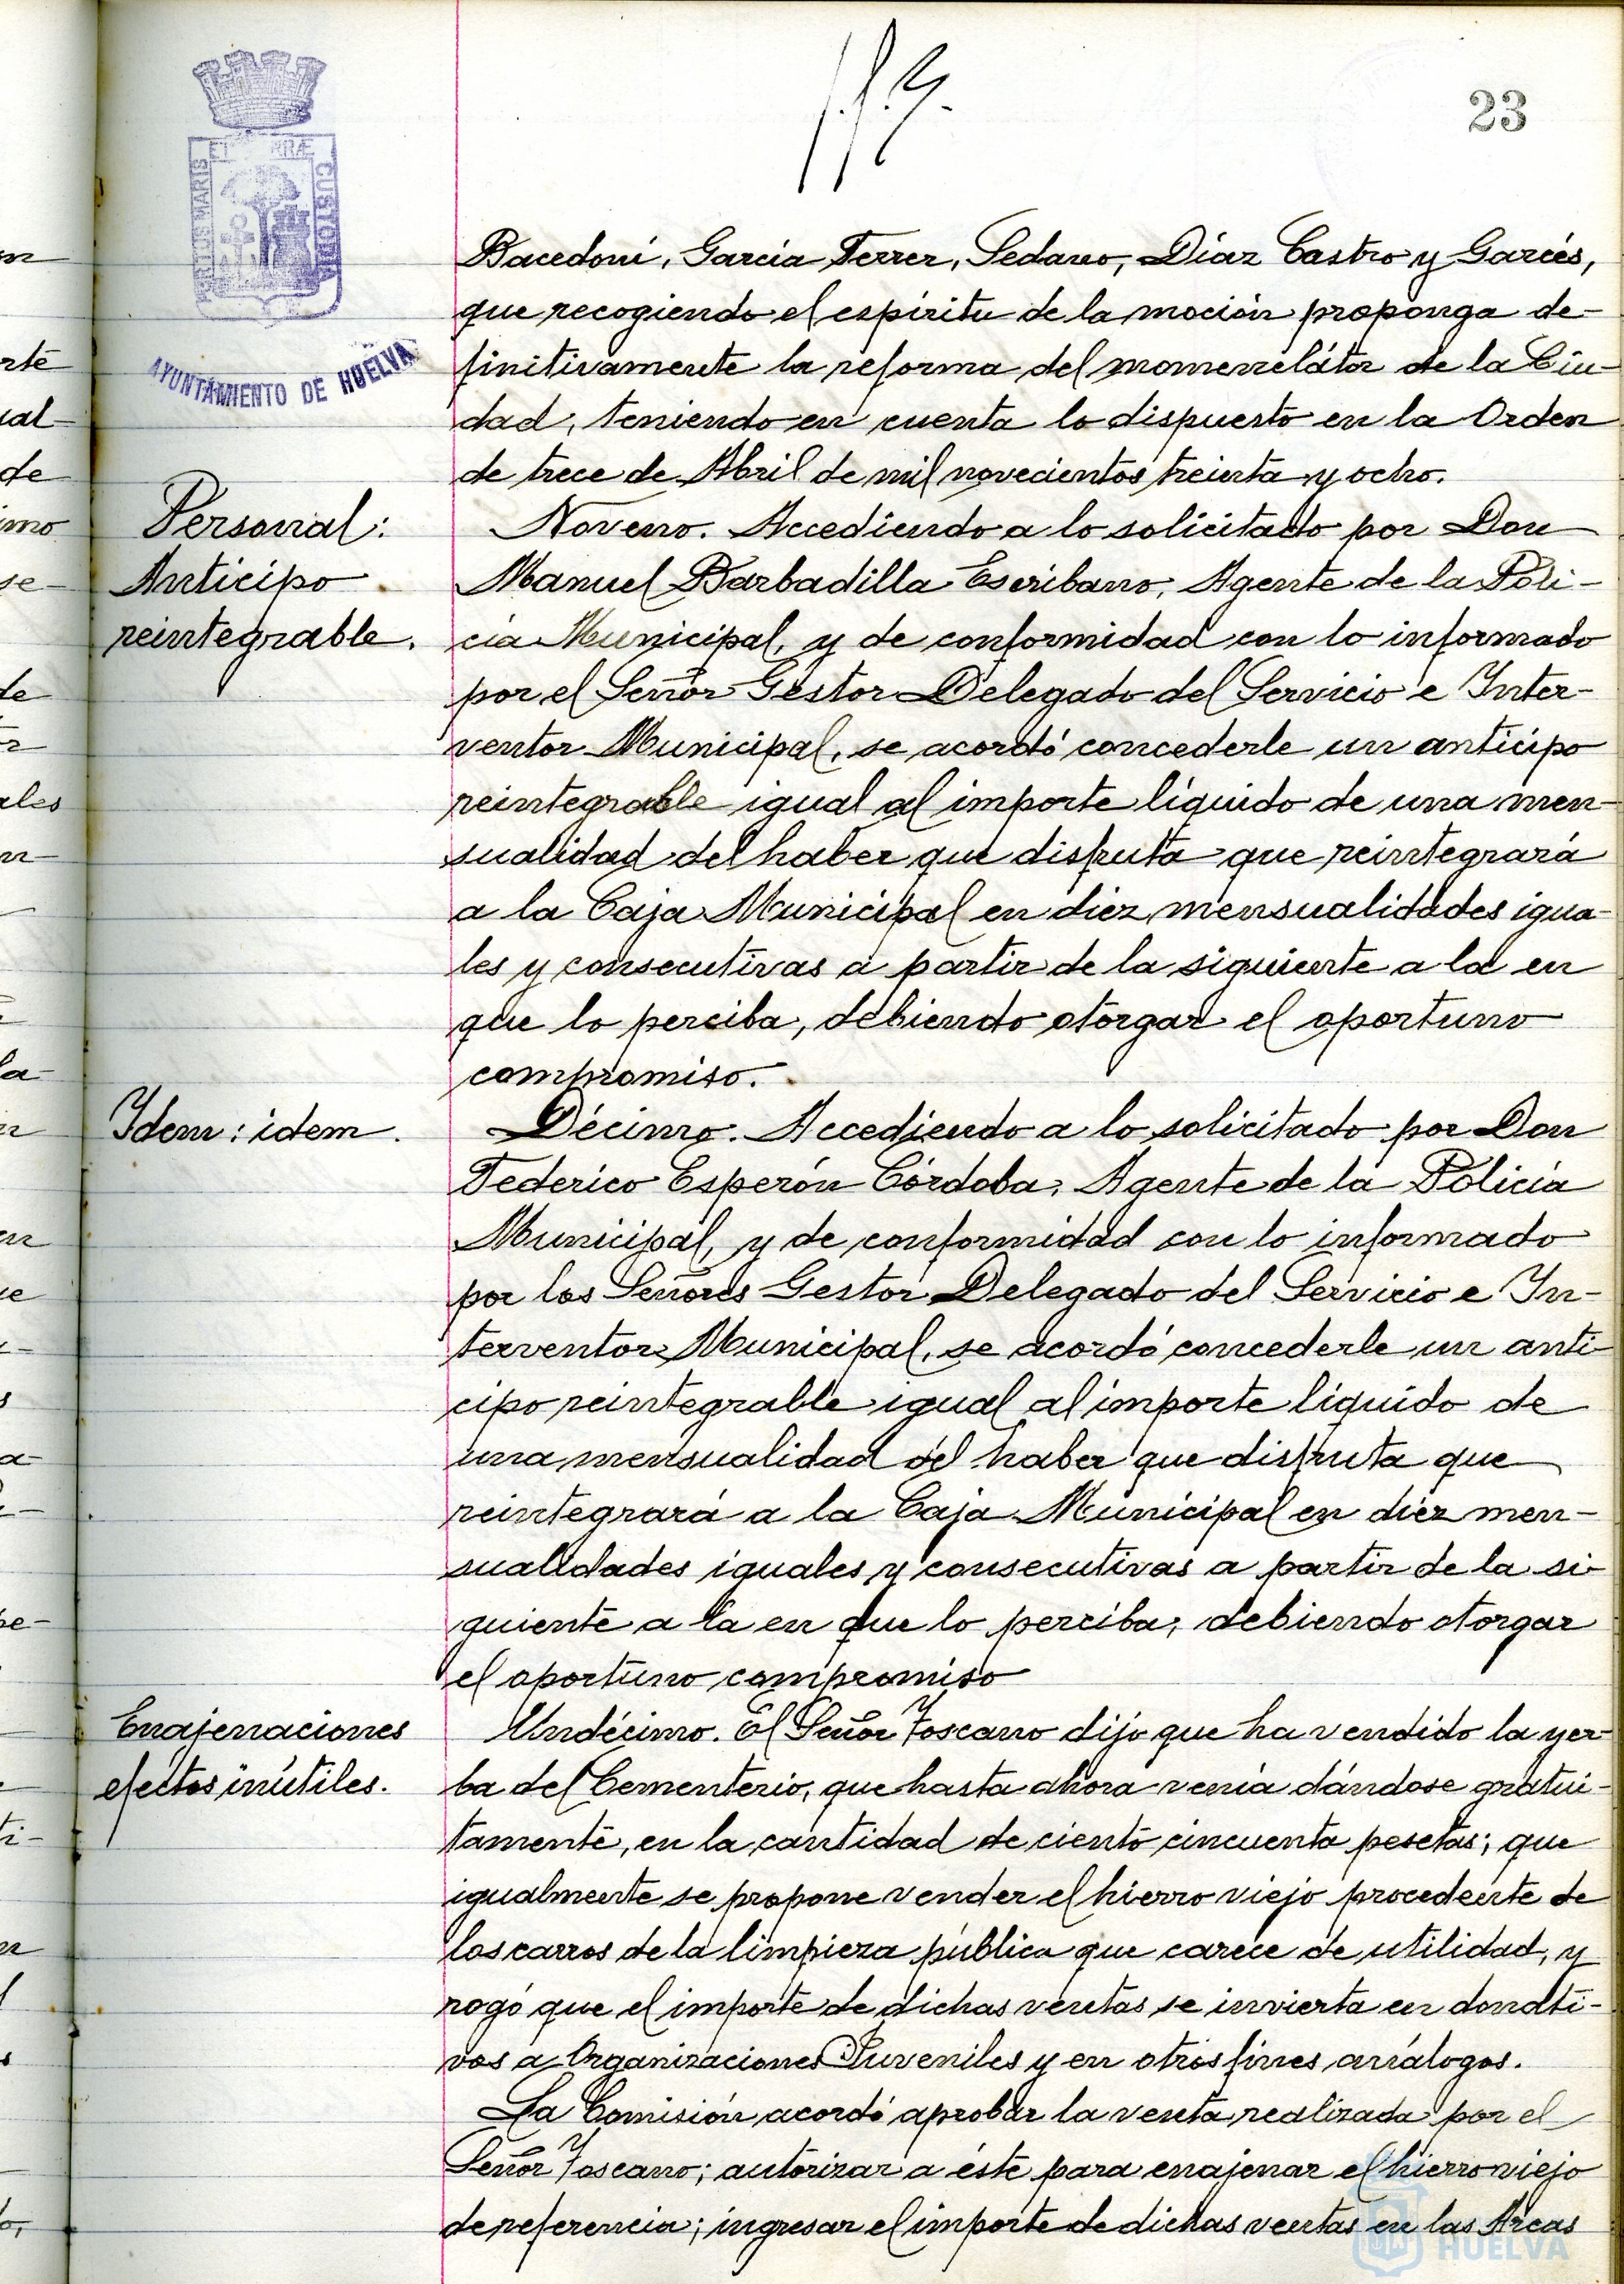 23
PORTUS MARIS ET TERRÆ CUSTODIA
AYUNTAMIENTO DE HUELVA
Bacedoni, García Ferrer, Sedano, Díaz Castro y Garcés,
que recogiendo el espíritu de la moción proponga de-
finitivamente la reforma del nomenclátor de la Ciu-
dad, teniendo en cuenta lo dispuesto en la Orden
de trece de Abril de mil novecientos treinta y ocho.
Personal:
Anticipo
reintegrable.
Noveno. Accediendo a lo solicitado por Don
Manuel Barbadilla Escribano, Agente de la Poli-
cía Municipal, y de conformidad con lo informado
por el Señor Gestor Delegado del Servicio e Inter-
ventor Municipal, se acordó concederle un anticipo
reintegrable igual al importe líquido de una men-
sualidad del haber que disfruta que reintegrará
a la Caja Municipal en diez mensualidades igua-
les y consecutivas a partir de la siguiente a la en
que lo perciba, debiendo otorgar el oportuno
compromiso.
Idem: idem.
Décimo. Accediendo a lo solicitado por Don
Federico Esperón Córdoba, Agente de la Policía
Municipal, y de conformidad con lo informado
por los Señores Gestor Delegado del Servicio e In-
terventor Municipal, se acordó concederle un anti-
cipo reintegrable igual al importe líquido de
una mensualidad del haber que disfruta que
reintegrará a la Caja Municipal en diez men-
sualidades iguales y consecutivas a partir de la si-
guiente a la en que lo perciba, debiendo otorgar
el oportuno compromiso
Enajenaciones
efectos inútiles.
Undécimo. El Señor Toscano dijo que ha vendido la yer-
ba del Cementerio, que hasta ahora venía dándose gratui-
tamente, en la cantidad de ciento cincuenta pesetas; que
igualmente se propone vender el hierro viejo procedente de
los carros de la limpieza pública que carece de utilidad, y
rogó que el importe de dichas ventas se invierta en donati-
vos a Organizaciones Juveniles y en otros fines análogos.
La Comisión acordó aprobar la venta realizada por el
Señor Toscano; autorizar a éste para enajenar el hierro viejo
de referencia; ingresar el importe de dichas ventas en las Arcas
HUELVA